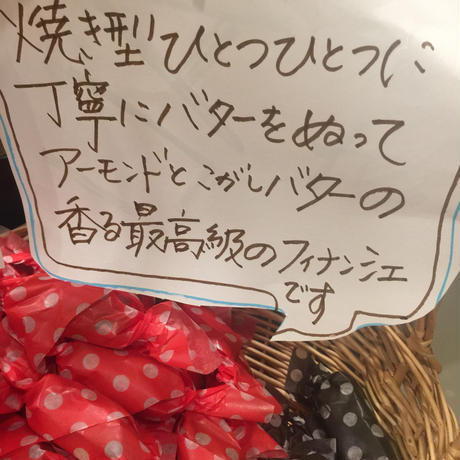 焼き型ひとつひとつに
丁寧にバターをぬって
アーモンドとこがしバターの
香る最高級のフィナンシェ
です